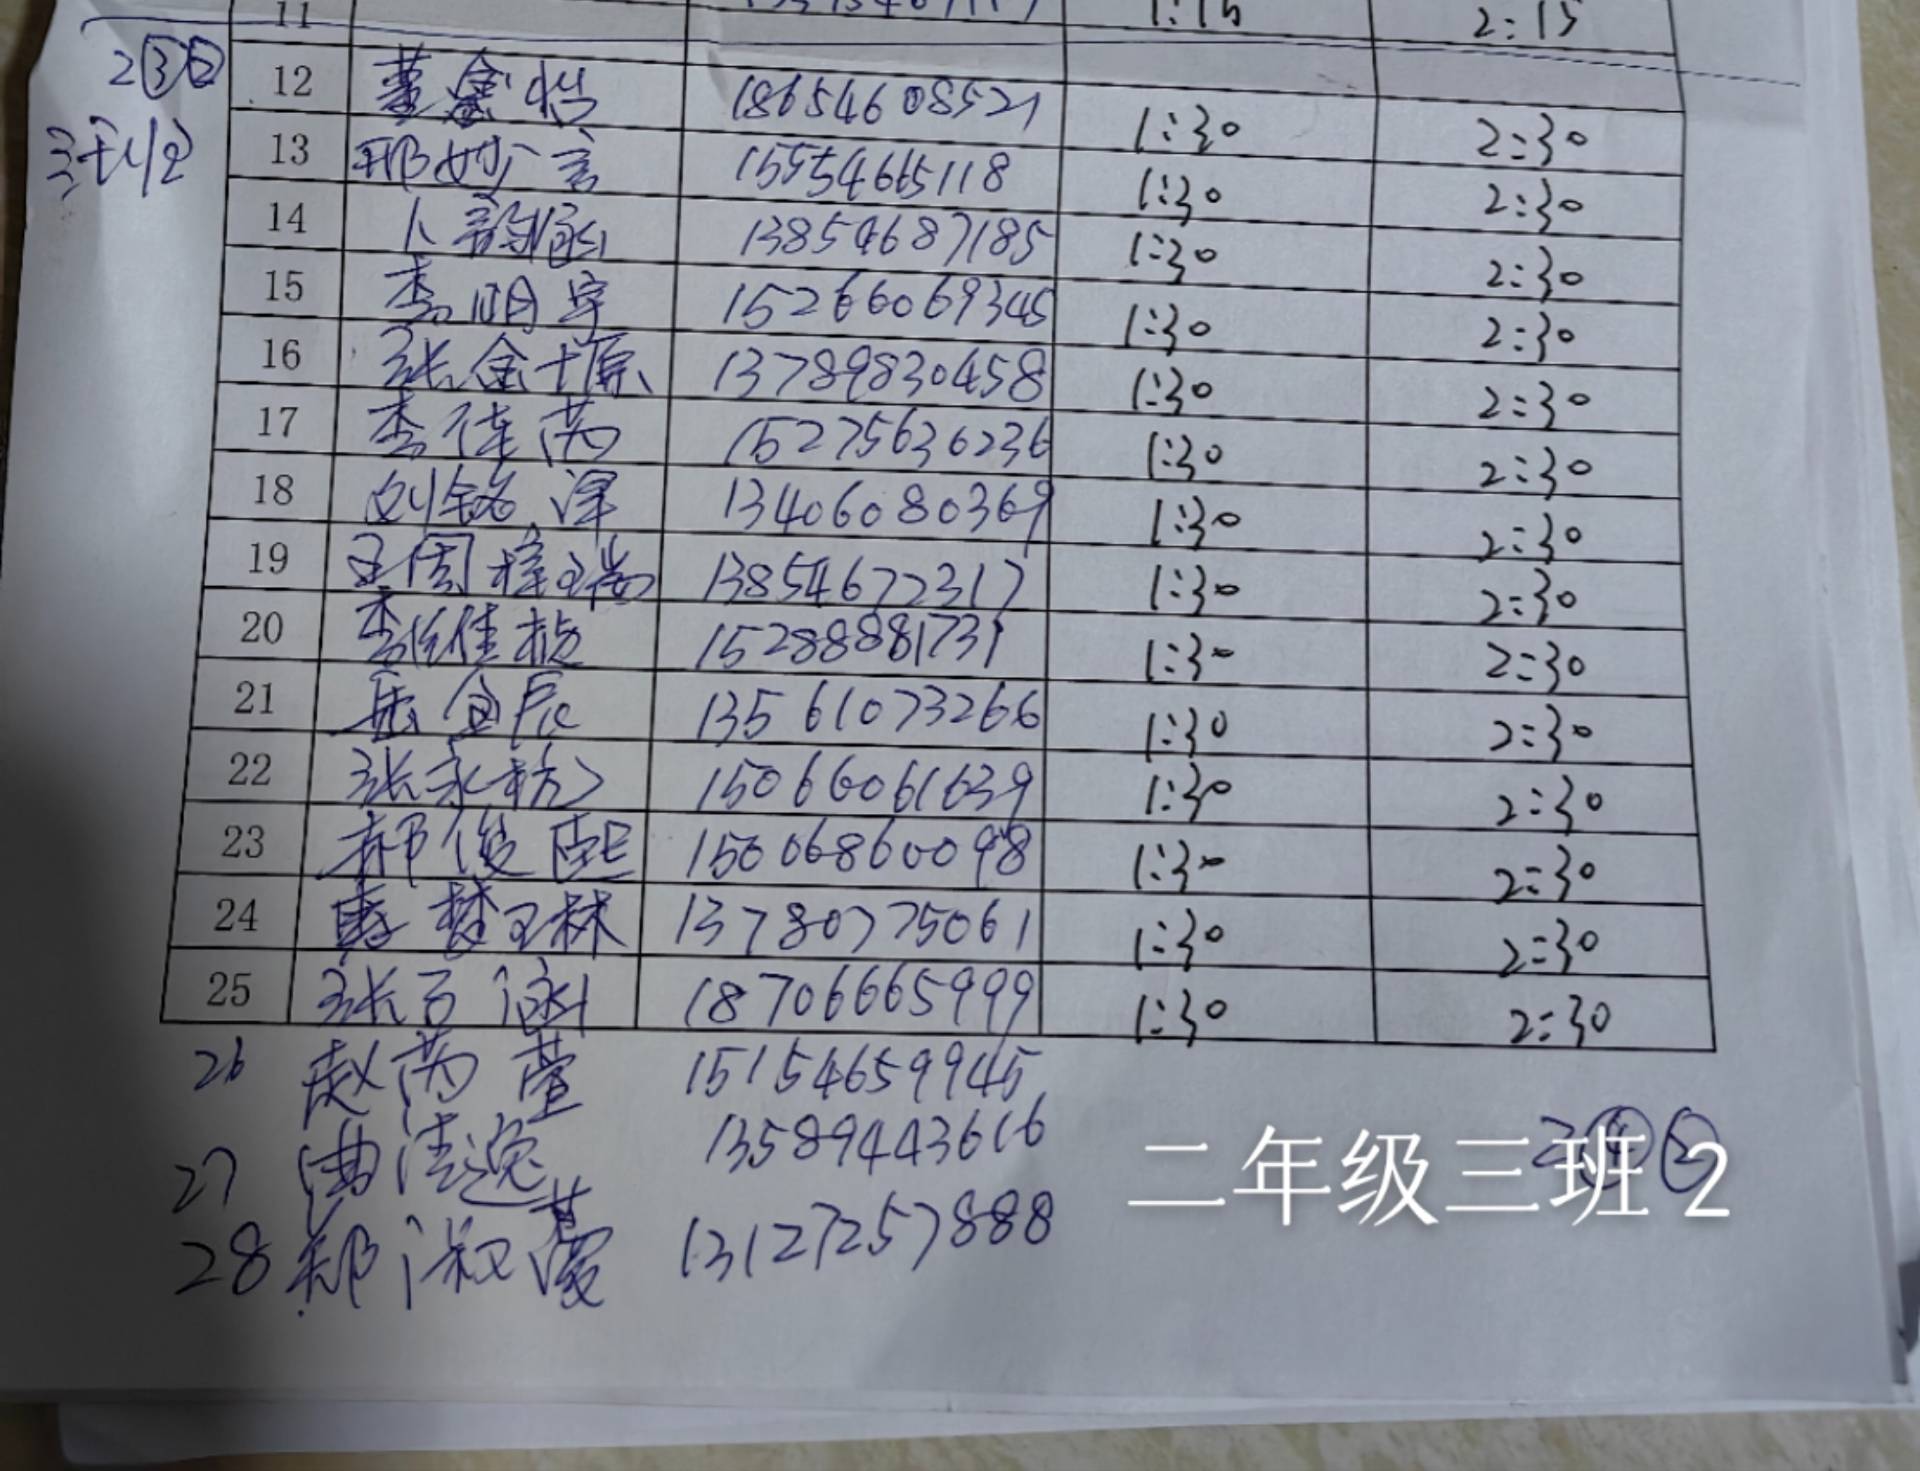 11 1:15 2:15
2③②
12 董金怡 18654608521 1:30 2:30
13 邢妙言 15554665118 1:30 2:30
14 卜韵涵 13854687185 1:30 2:30
15 李明宇 15266069345 1:30 2:30
16 张金塬 13789830458 1:30 2:30
17 李佳芮 15275636236 1:30 2:30
18 刘铭泽 13406080369 1:30 2:30
19 王周梓瑞 13854672317 1:30 2:30
20 李佳 15288881731 1:30 2:30
21 岳金辰 13561073266 1:30 2:30
22 张永杭 15066061639 1:30 2:30
23 郝俊熙 15006860098 1:30 2:30
24 梦琳 13780775061 1:30 2:30
25 张百涵 18706665999 1:30 2:30
26 赵芮萱 15154659945
27 曹浩逸 13589443616
28 郑淑蔓 13127257888
二年级三班 2